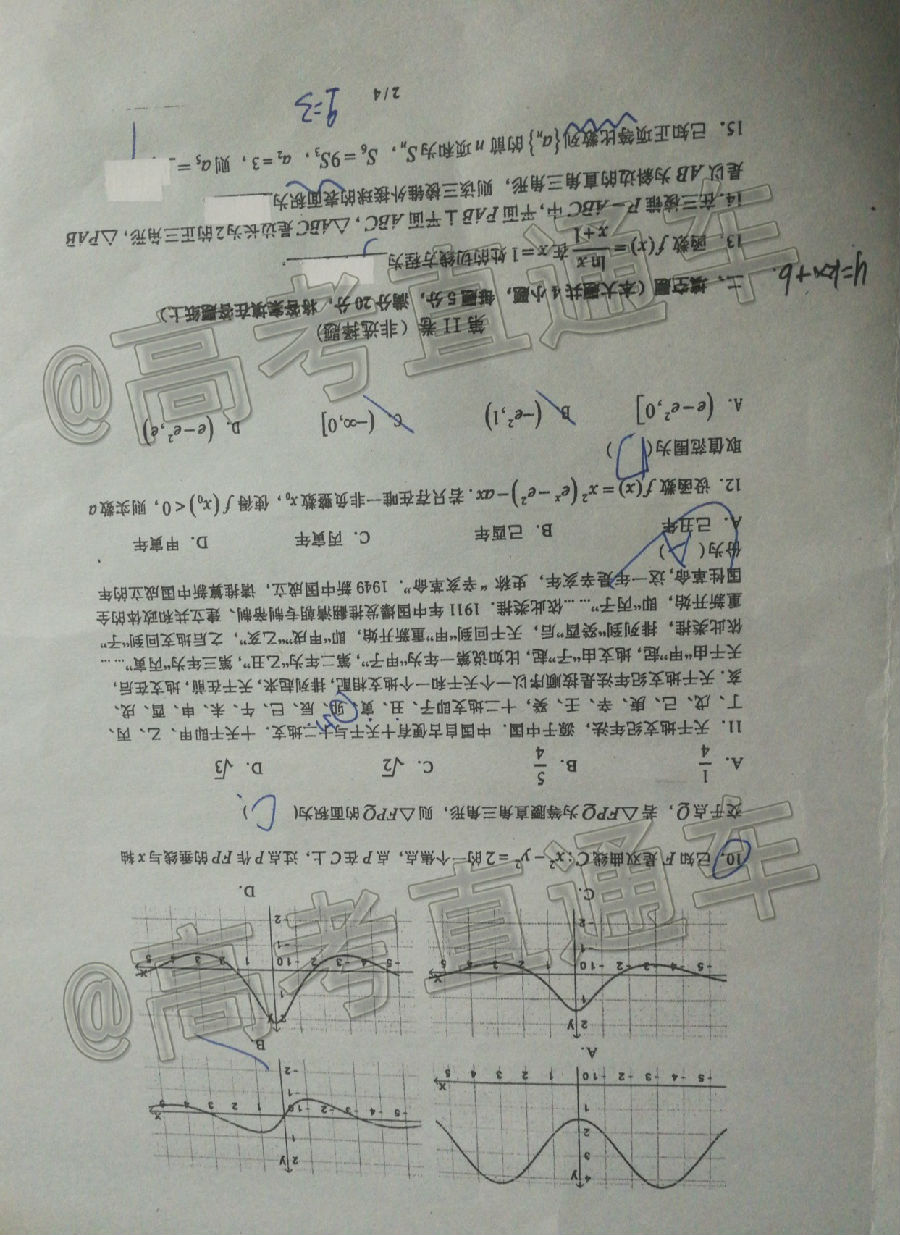 A.
B.
C.
D.
10. 已知F是双曲线C:x²-y²=2的一个焦点，点P在C上，过点P作FP的垂线与x轴
交于点Q，若△FPQ为等腰直角三角形，则△FPQ的面积为( C )
A. 1/4 B. 5/4 C. √2 D. √3
11. 天干地支纪年法，源于中国．中国自古便有十天干与十二地支．十天干即甲、乙、丙、
丁、戊、己、庚、辛、壬、癸，十二地支即子、丑、寅、卯、辰、巳、午、未、申、酉、戌、
亥．天干地支纪年法是按顺序以一个天干和一个地支相配，排列起来，天干在前，地支在后，
天干由“甲”起，地支由“子”起，比如说第一年为“甲子”，第二年为“乙丑”，第三年为“丙寅”……
依此类推，排列到“癸酉”后，天干回到“甲”重新开始，即“甲戌”“乙亥”，之后地支回到“子”
重新开始，即“丙子”……依此类推．1911年中国爆发推翻清朝专制帝制、建立共和政体的全
国性革命，这一年是辛亥年，史称“辛亥革命”．1949新中国成立，请推算新中国成立的年
份为( A )
A. 己丑年 B. 己酉年 C. 丙寅年 D. 甲寅年
12. 设函数f(x)=x²(eˣ-e²)-ax．若只存在唯一非负整数x₀，使得f(x₀)<0，则实数a
取值范围为( )
A. (e-e²,0] B. (-e²,1) C. (-∞,0] D. (e-e²,e)
第II卷（非选择题）
二、填空题（本大题共4小题，每题5分，满分20分，将答案填在答题纸上）
13. 函数f(x)=ln x/(x+1)在x=1处的切线方程为
y=kx+b.
14. 在三棱锥P-ABC中，平面PAB⊥平面ABC，△ABC是边长为2的正三角形，△PAB
是以AB为斜边的直角三角形，则该三棱锥外接球的表面积为
15. 已知正项等比数列{aₙ}的前n项和为Sₙ，S₆=9S₃，a₂=3，则a₅=
q=3
2 / 4
@高考直通车
@高考直通车